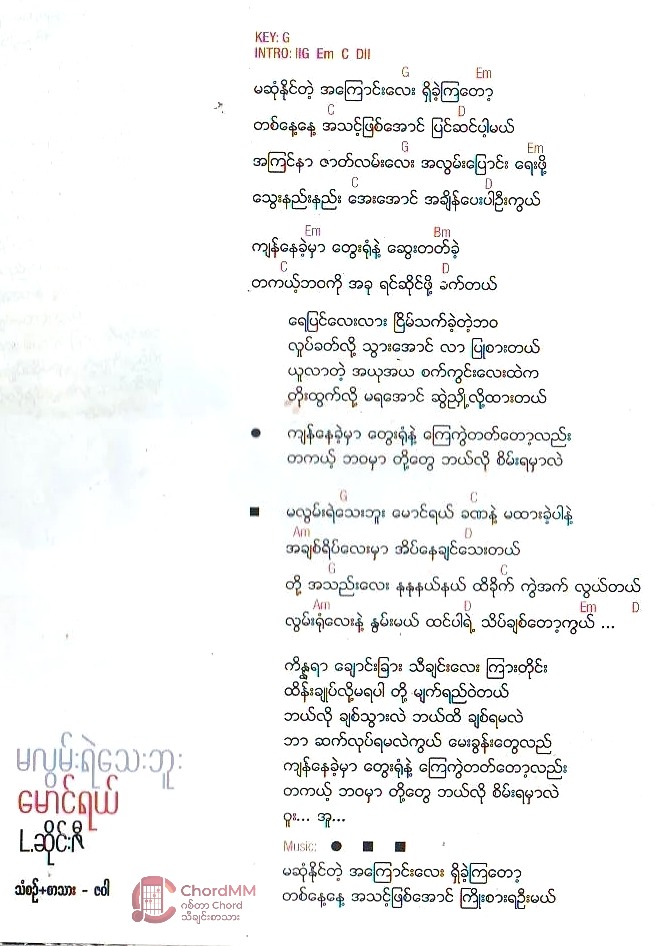 KEY: G
INTRO: IIG Em C DII
G Em
မဆုံနိုင်တဲ့ အကြောင်းလေး ရှိခဲ့ကြတော့
C D
တစ်နေ့နေ့ အသင့်ဖြစ်အောင် ပြင်ဆင်ပါ့မယ်
G Em
အကြင်နာ ဇာတ်လမ်းလေး အလွမ်းပြောင်း ရေးဖို့
C D
သွေးနည်းနည်း အေးအောင် အချိန်ပေးပါဦးကွယ်
Em Bm
ကျန်နေခဲ့မှာ တွေးရုံနဲ့ ဆွေးတတ်ခဲ့
C D
တကယ့်ဘဝကို အခု ရင်ဆိုင်ဖို့ ခက်တယ်
ရေပြင်လေးလား ငြိမ်သက်ခဲ့တဲ့ဘဝ
လှုပ်ခတ်လို့ သွားအောင် လာ ပြုစားတယ်
ယူလာတဲ့ အယုအယ စက်ကွင်းလေးထဲက
တိုးထွက်လို့ မရအောင် ဆွဲညှို့လို့ထားတယ်
● ကျန်နေခဲ့မှာ တွေးရုံနဲ့ ကြေကွဲတတ်တော့လည်း
တကယ့် ဘဝမှာ တို့တွေ ဘယ်လို စိမ်းရမှာလဲ
G C
■ မလွမ်းရဲသေးဘူး မောင်ရယ် ခဏနဲ့ မထားခဲ့ပါနဲ့
Am D
အချစ်ရိပ်လေးမှာ အိပ်နေချင်သေးတယ်
G C
တို့ အသည်းလေး နုနုနယ်နယ် ထိခိုက် ကွဲအက် လွယ်တယ်
Am D Em D
လွမ်းရုံလေးနဲ့ နွမ်းမယ် ထင်ပါရဲ့ သိပ်ချစ်တော့ကွယ် ...
ကိန္နရာ ချောင်းခြား သီချင်းလေး ကြားတိုင်း
ထိန်းချုပ်လို့မရပါ တို့ မျက်ရည်ဝဲတယ်
ဘယ်လို ချစ်သွားလဲ ဘယ်ထိ ချစ်ရမလဲ
ဘာ ဆက်လုပ်ရမလဲကွယ် မေးခွန်းတွေလည်
ကျန်နေခဲ့မှာ တွေးရုံနဲ့ ကြေကွဲတတ်တော့လည်း
တကယ့် ဘဝမှာ တို့တွေ ဘယ်လို စိမ်းရမှာလဲ
ဝူး... အူ...
Music: ● ■ ■
မဆုံနိုင်တဲ့ အကြောင်းလေး ရှိခဲ့ကြတော့
တစ်နေ့နေ့ အသင့်ဖြစ်အောင် ကြိုးစားရဦးမယ်
မလွမ်းရဲသေးဘူး
မောင်ရယ်
L.ဆိုင်းဇီ
သံစဉ်+စာသား - ဝေါ
ChordMM
ဂစ်တာ Chord
သီချင်းစာသား